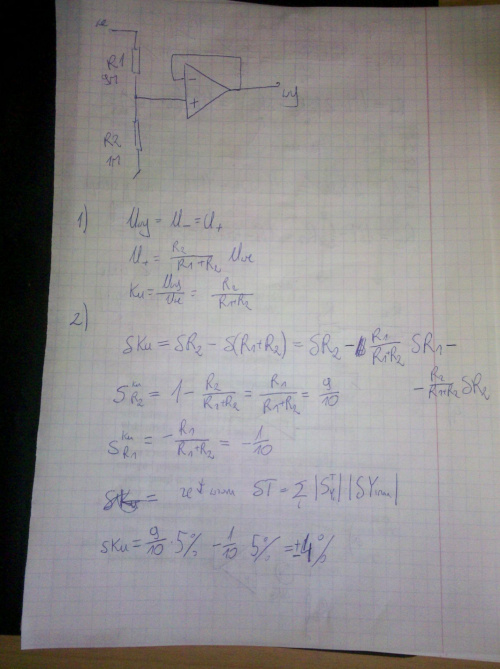 we
R1
9Ω
R2
1Ω
wy
1) Uwy = U- = U+
U+ = R2/(R1+R2) Uwe
Ku = Uwy/Uwe = R2/(R1+R2)
2)
δKu = δR2 - δ(R1+R2) = δR2 - R1/(R1+R2) δR1 -
- R2/(R1+R2) δR2
S^Ku_R2 = 1 - R2/(R1+R2) = R1/(R1+R2) = 9/10
S^Ku_R1 = -R1/(R1+R2) = -1/10
δT = Σ_i |S^T_i| |δY
δKu = 9/10 · 5% - 1/10 5% = ±4%